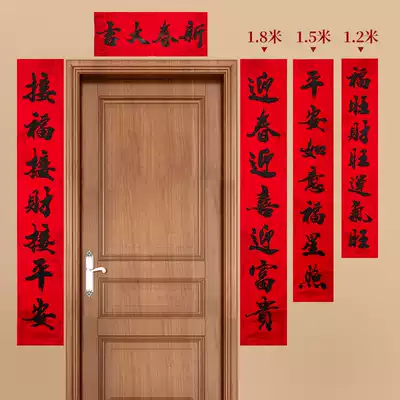 新春大吉
1.8米
1.5米
1.2米
迎春迎喜迎富貴
接福接財接平安
平安如意福星照
福旺財旺運氣旺